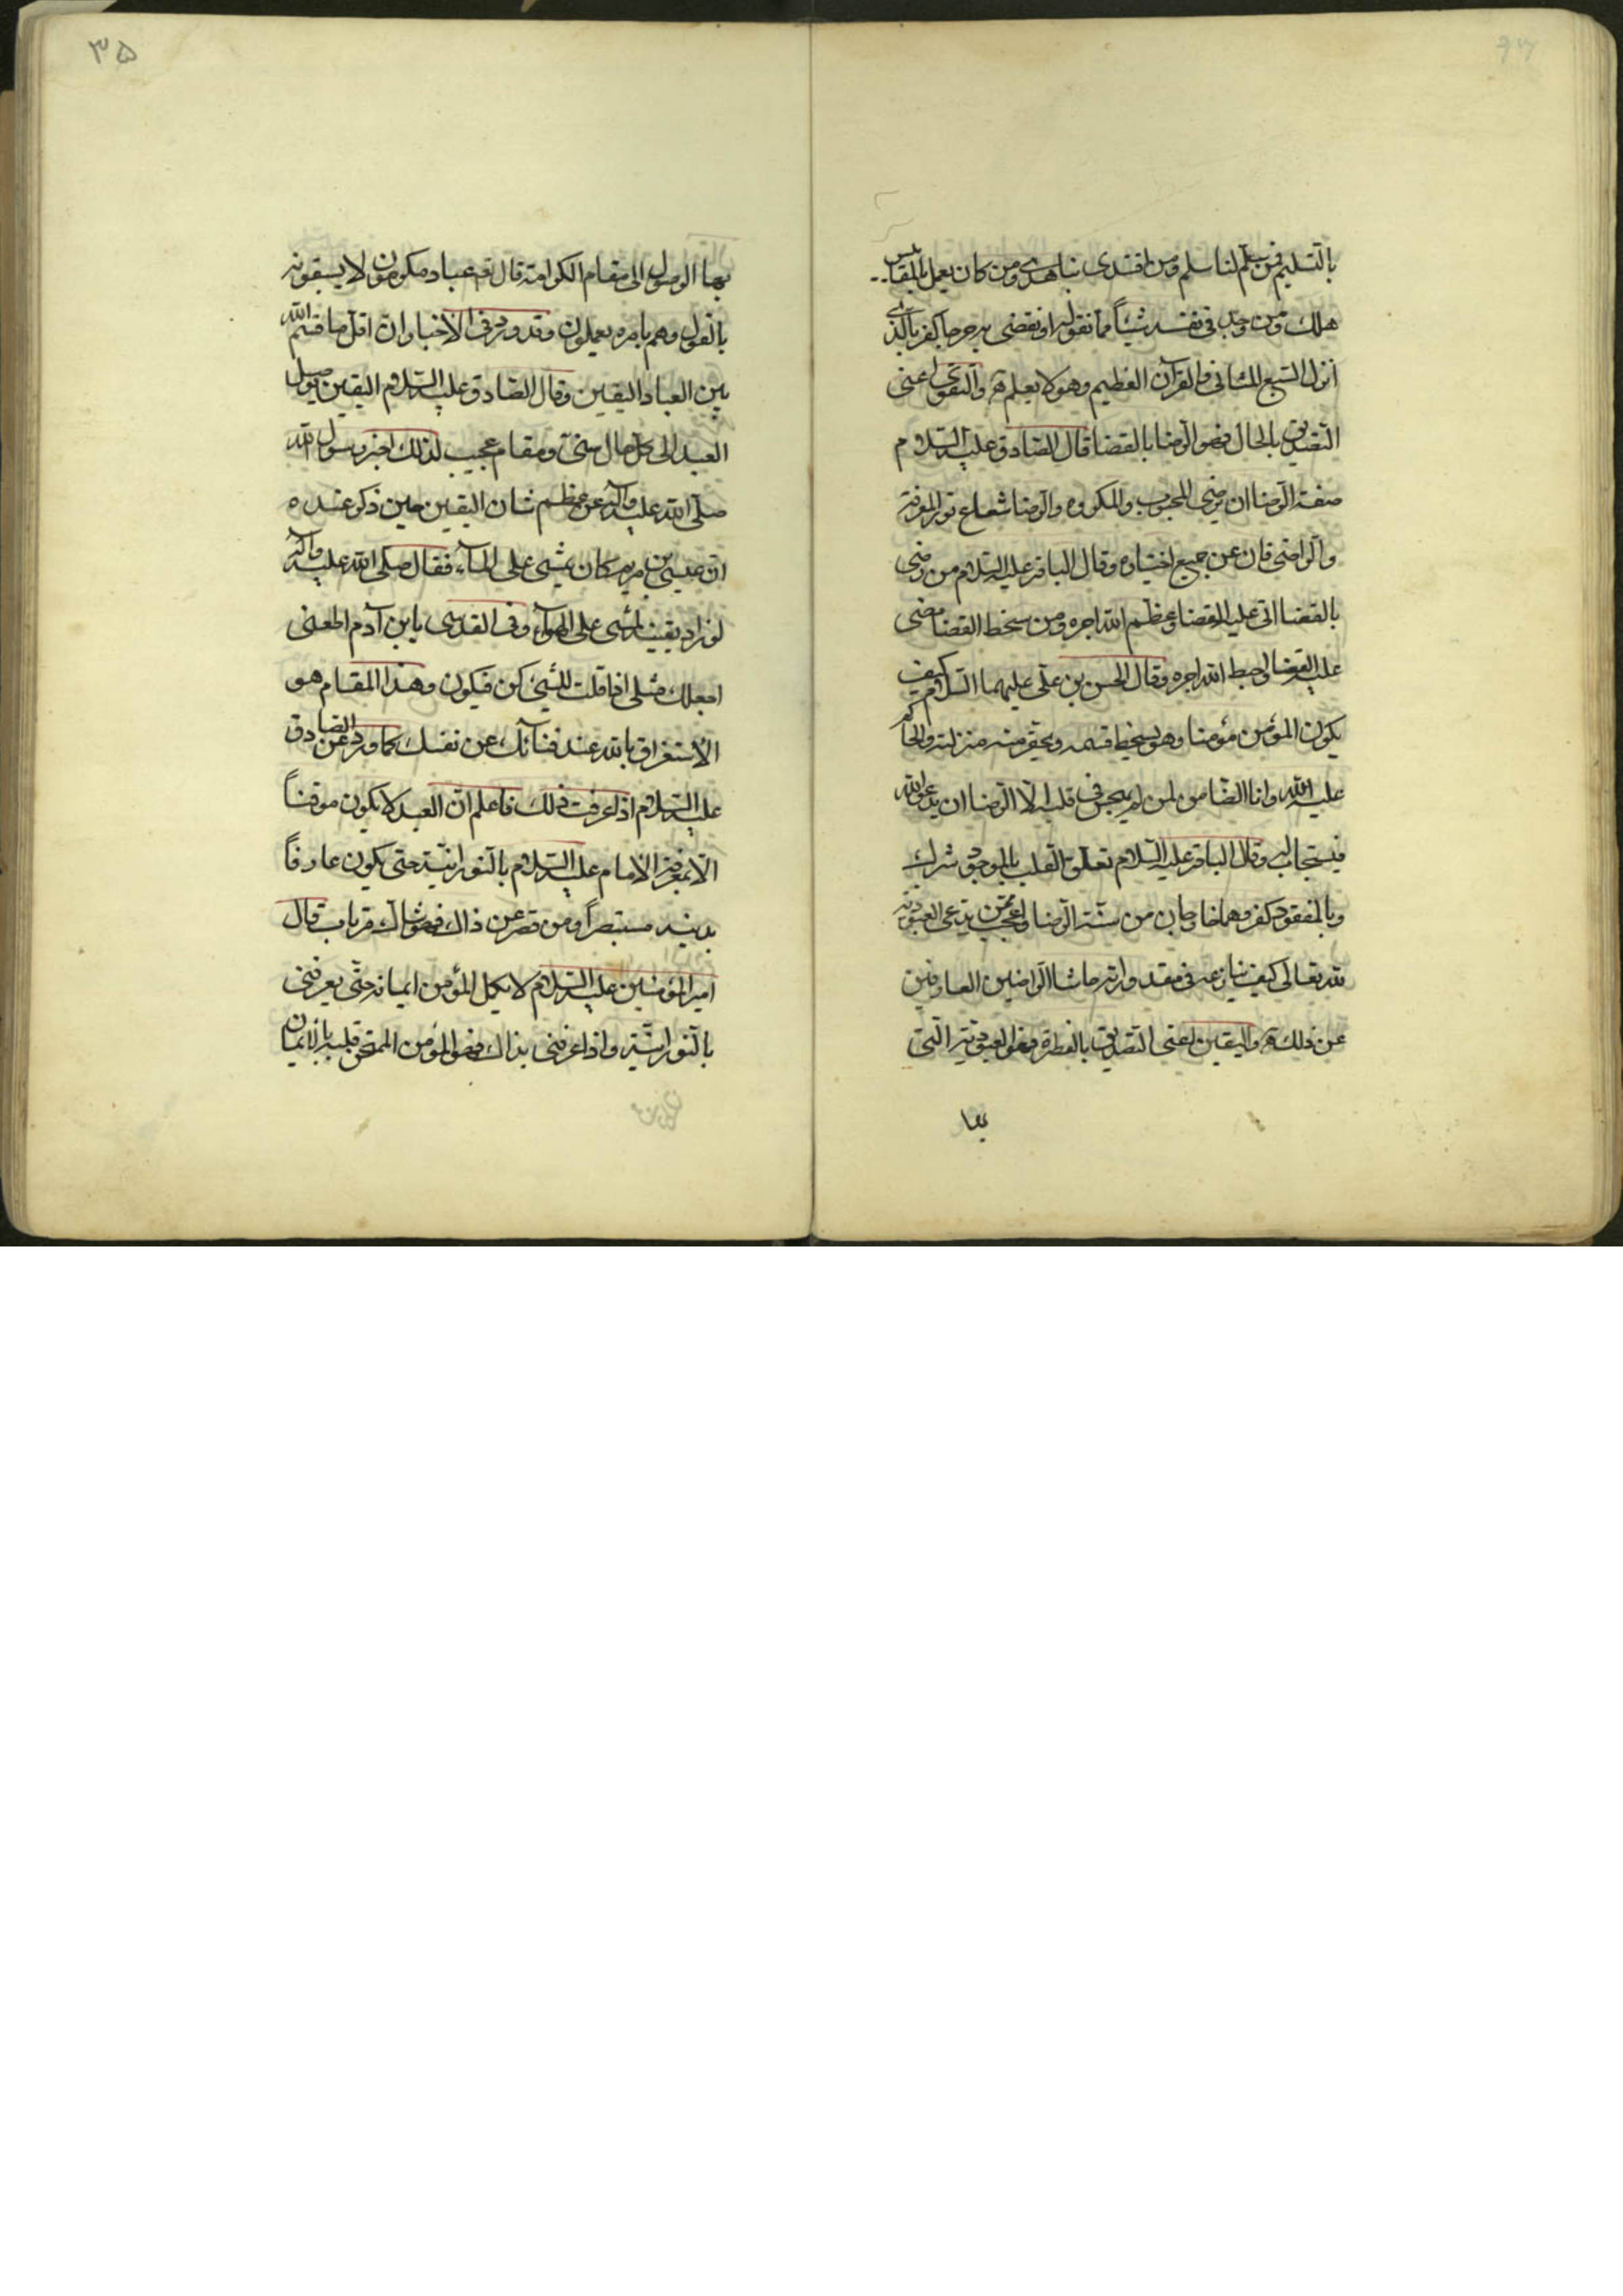 بالتسليم فمن سلّم لنا سلم ومن اقتدى بنا هدى ومن كان يعمل بالمقاييس
هلك ومن وجد في نفسه شيئاً مما نقوله او نقضى به حرجا كفر بالذى
انزل السبع المثانى والقرآن العظيم وهو لا يعلم والتقوى اعنى
التصديق بالحال فهو الرضا بالقضا قال الصادق عليه السلام
صفة الرضا ان يرضى المحبوب والمكروه والرضا شعاع نور المعرفة
والراضى فان عن جميع اختياره وقال الباقر عليه السلام من رضى
بالقضا اتى عليه القضا وعظم الله اجره ومن سخط القضا مضى
عليه القضا واحبط الله اجره وقال الحسن بن على عليهما السلام كيف
يكون المؤمن مؤمنا وهو يسخط قسمه ويحقر منزلته والحاكم
عليه الله وانا الضامن لمن لم يهجس فى قلبه الا الرضا ان يدعو الله
فيستجاب له وقال الباقر عليه السلام تعلق القلب بالموجود شرك
وبالمفقود كفر وهما خارجان من سنة الرضا واعجب ممن يدعى العبودية
لله تعالى كيف ينازعه فى مقدوراته حاشا الراضين العارفين
عن ذلك واليقين اعنى التصديق بالفطرة فهو العبودية التى
بها
٣۵
بها الوصول الى مقام الكرامة قال عباد مكرمون لا يسبقونه
بالقول وهم بامره يعملون وقد ورد فى الاخبار ان اقل ما قسم الله
بين العباد اليقين وقال الصادق عليه السلام اليقين يوصل
العبد الى كل حال سنى ومقام عجيب لذلك اخبر رسول الله
صلى الله عليه وآله عن عظم شان اليقين حين ذكر عنده
ان عيسى بن مريم كان يمشى على المآء فقال صلى الله عليه وآله
لو زاد يقينه لمشى على الهوآء وفى القدسى يابن آدم اطعنى
اجعلك مثلى اذا قلت للشئ كن فيكون وهذا المقام هو
الاستغراق بالله عند فنائك عن نفسك كما ورد عن الصادق
عليه السلام اذا عرفت ذلك فاعلم ان العبد لا يكون موقناً
الا بمعرفة الامام عليه السلام بالنورانية حتى يكون عارفاً
بدينه مستبصراً ومن قصر عن ذاك فهو شاك مرتاب قال
امير المؤمنين عليه السلام لا يكمل المؤمن ايمانه حتى يعرفنى
بالنورانية واذا عرفنى بذاك فهو المؤمن الممتحن قلبه بالايمان